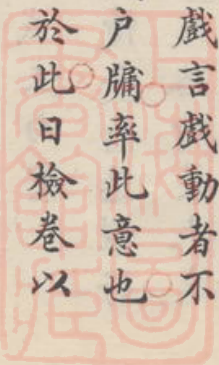 戲言戲動者不
户牖率此意也
於此日檢卷以